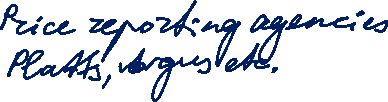 Price reporting agencies
Platts, Argus etc.